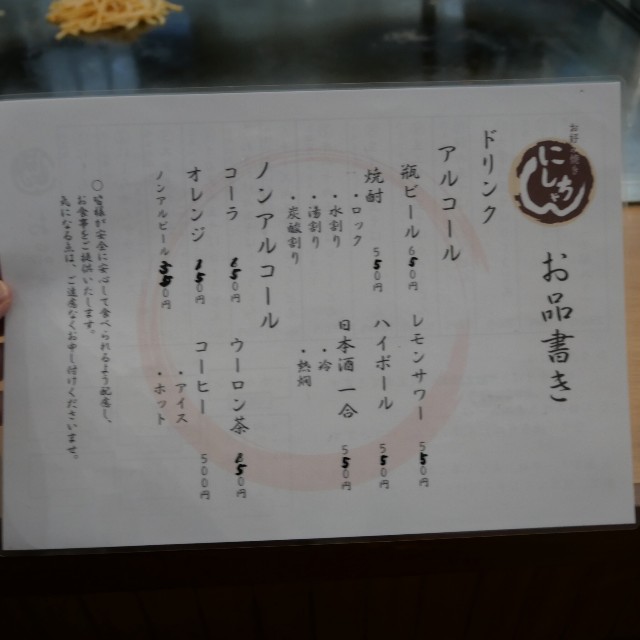 お品書き
ドリンク
アルコール
瓶ビール 650円
レモンサワー 550円
焼酎 550円
・ロック
・水割り
・湯割り
・炭酸割り
ハイボール
日本酒 一合 550円
・冷
・熱燗
ノンアルコール
コーラ
ウーロン茶
オレンジ
コーヒー 500円
・アイス
・ホット
ノンアルビール
〇皆様が安全に安心して食べられるよう配慮し、
お食事をご提供いたします。
気になる点は、ご遠慮なくお申し付けくださいませ。